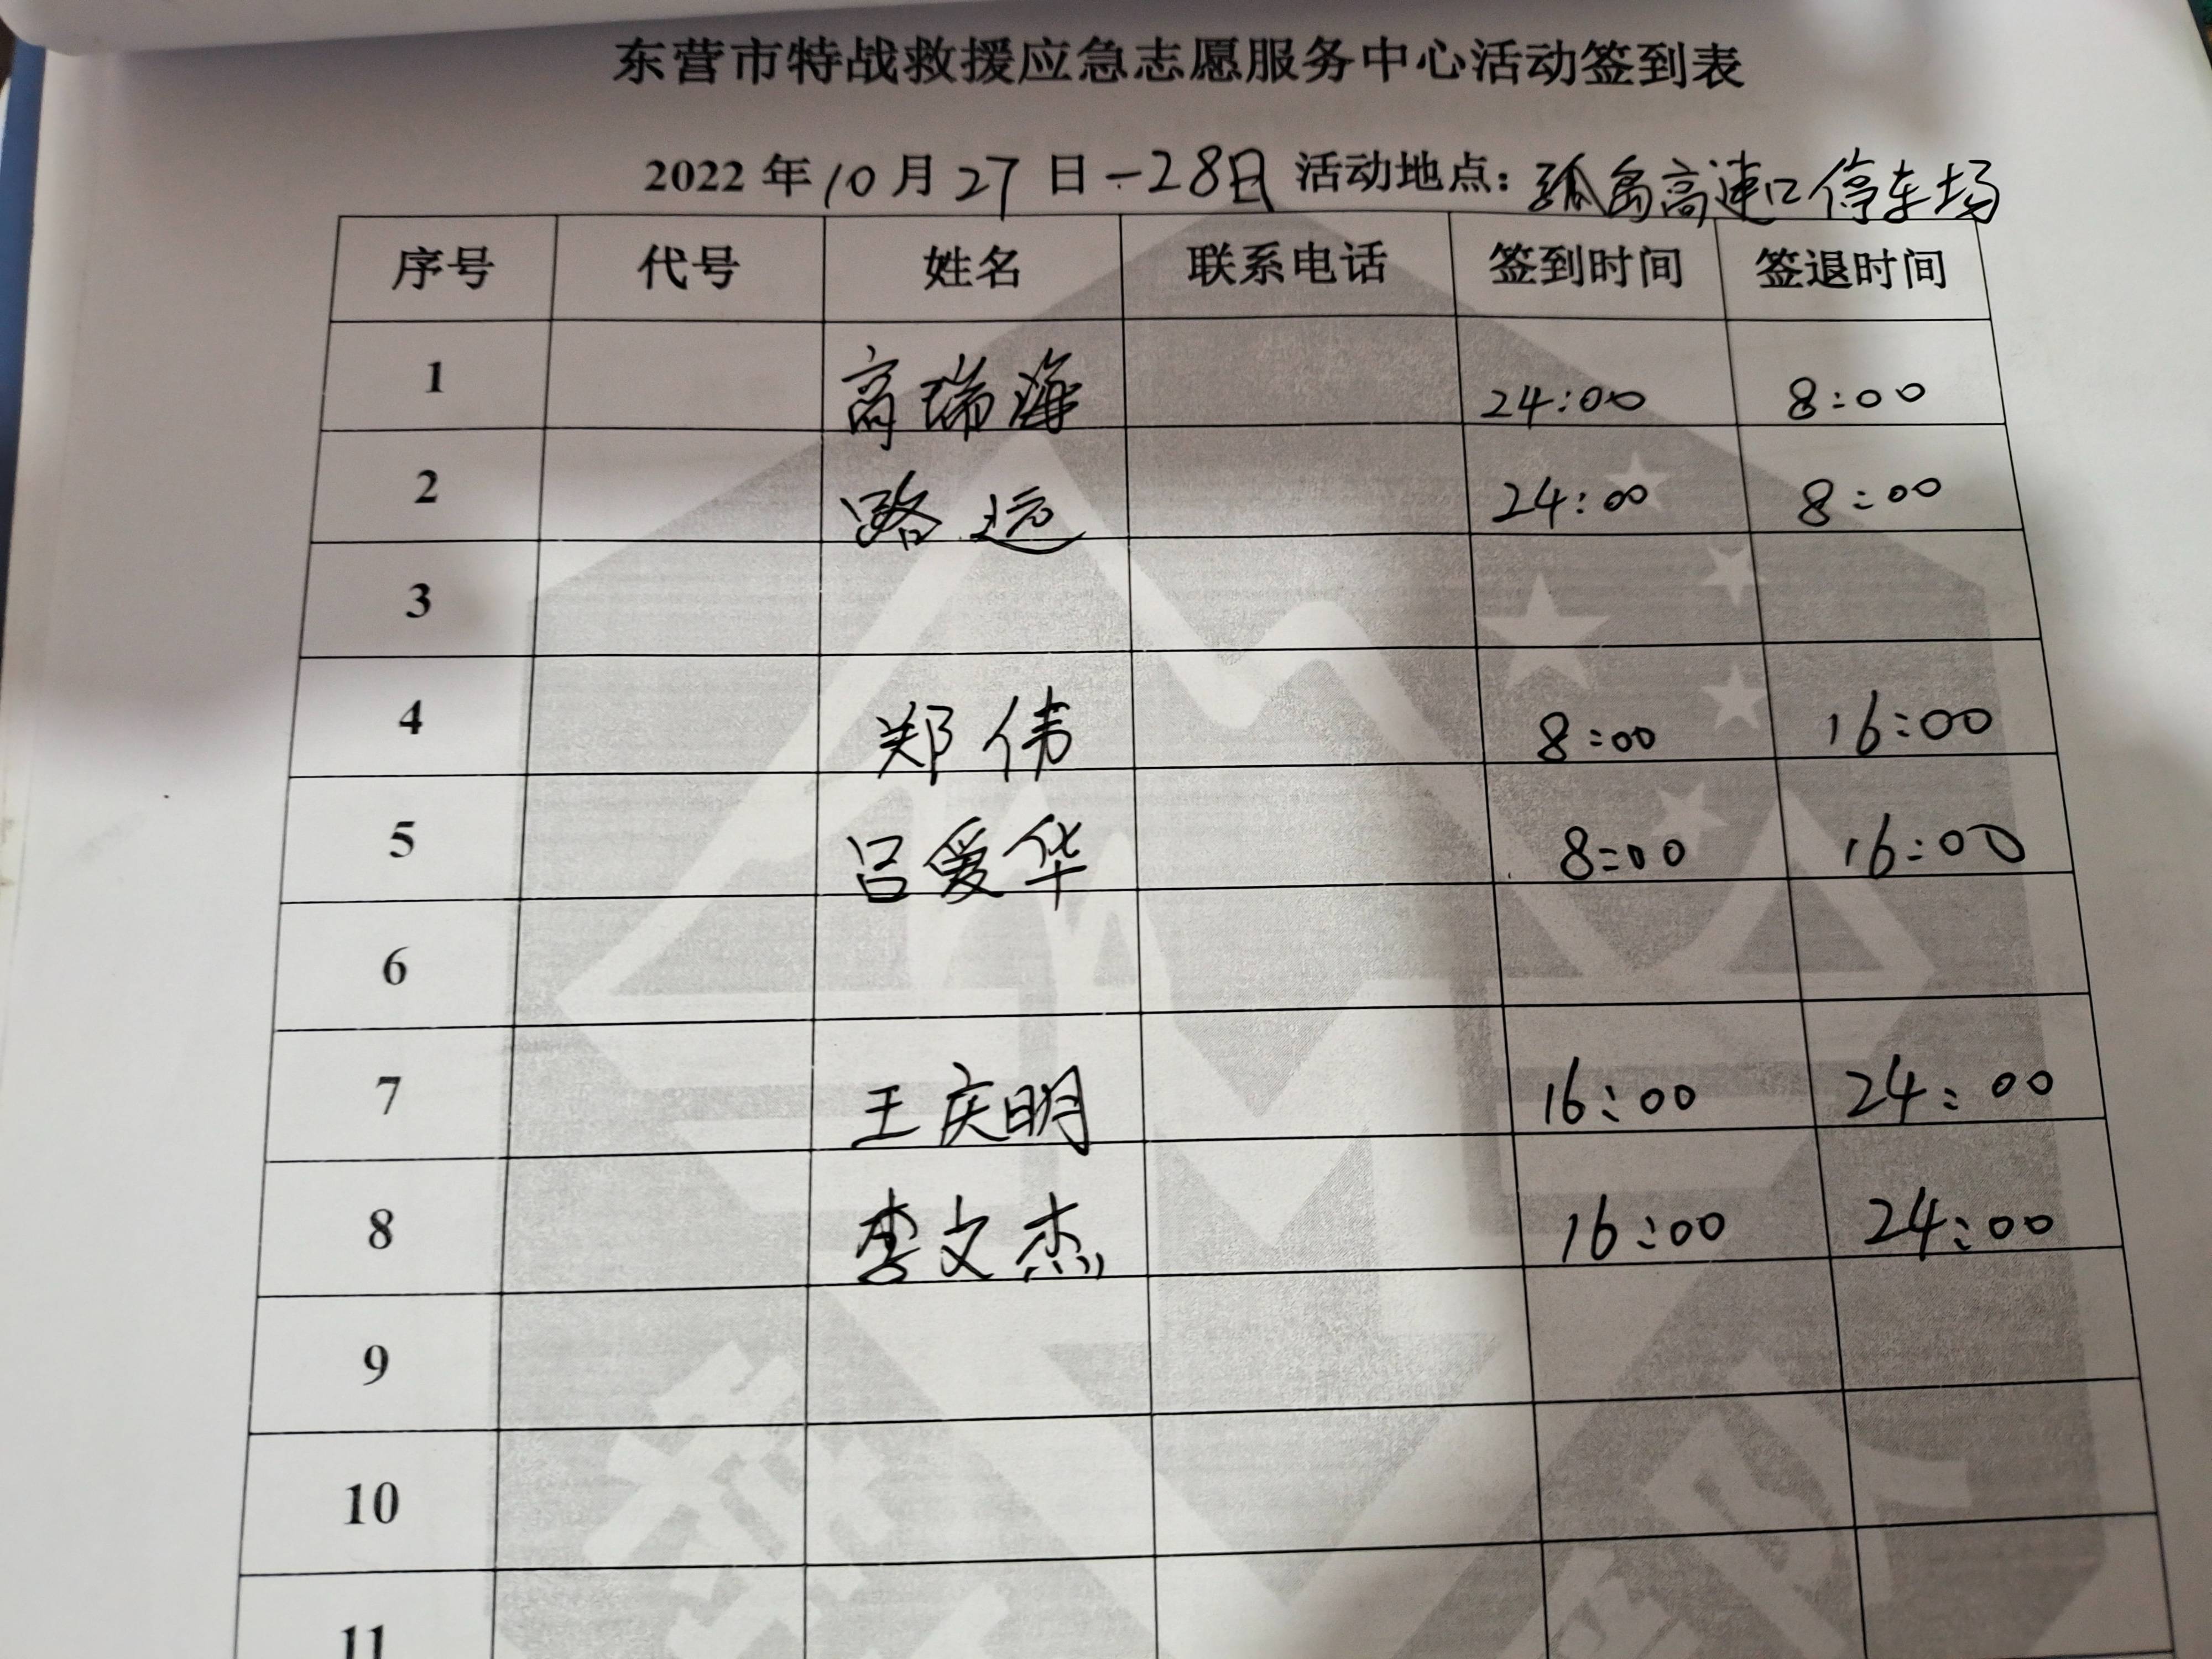 东营市特战救援应急志愿服务中心活动签到表
2022 年 10 月 27 日 -28日 活动地点: 孤岛高速口停车场
序号 代号 姓名 联系电话 签到时间 签退时间
1 高瑞海 24:00 8:00
2 路远 24:00 8:00
3
4 郑伟 8:00 16:00
5 吕爱华 8:00 16:00
6
7 王庆明 16:00 24:00
8 李文杰 16:00 24:00
9
10
11